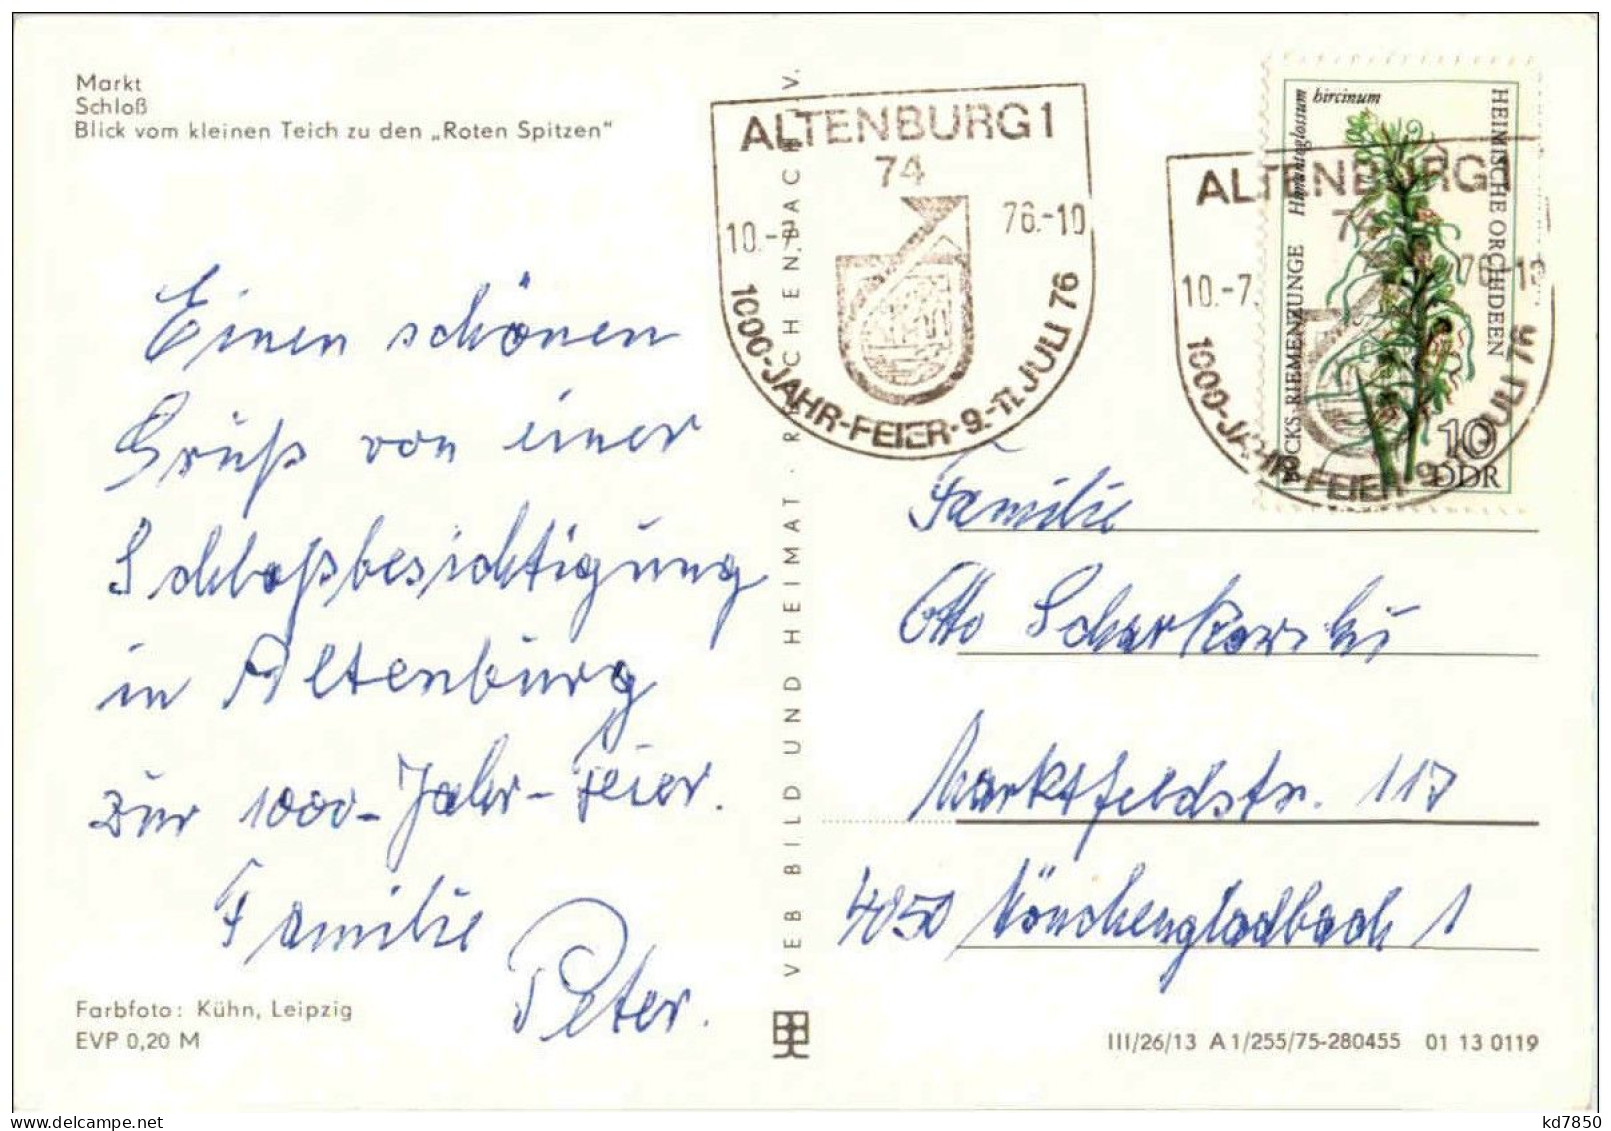 Markt
Schloß
Blick vom kleinen Teich zu den „Roten Spitzen“
Einen schönen
Gruß von einer
Schloßbesichtigung
in Altenburg
zur 1000-Jahr-Feier.
Familie
Peter.
Farbfoto: Kühn, Leipzig
EVP 0,20 M
VEB BILD UND HEIMAT · REICHENBACH I. V.
ALTENBURG 1
74
10.-7. 76.-10
1000-JAHR-FEIER · 9.-11. JULI 76
ALTENBURG 1
74
10.-7. 76.-10
1000-JAHR-FEIER · 9.-11. JULI 76
Himantoglossum hircinum
BOCKS-RIEMENZUNGE
HEIMISCHE ORCHIDEEN
10
DDR
Familie
Otto
Marktfeldstr. 117
4050 Mönchengladbach 1
III/26/13 A 1/255/75-280455 01 13 0119
kd7850